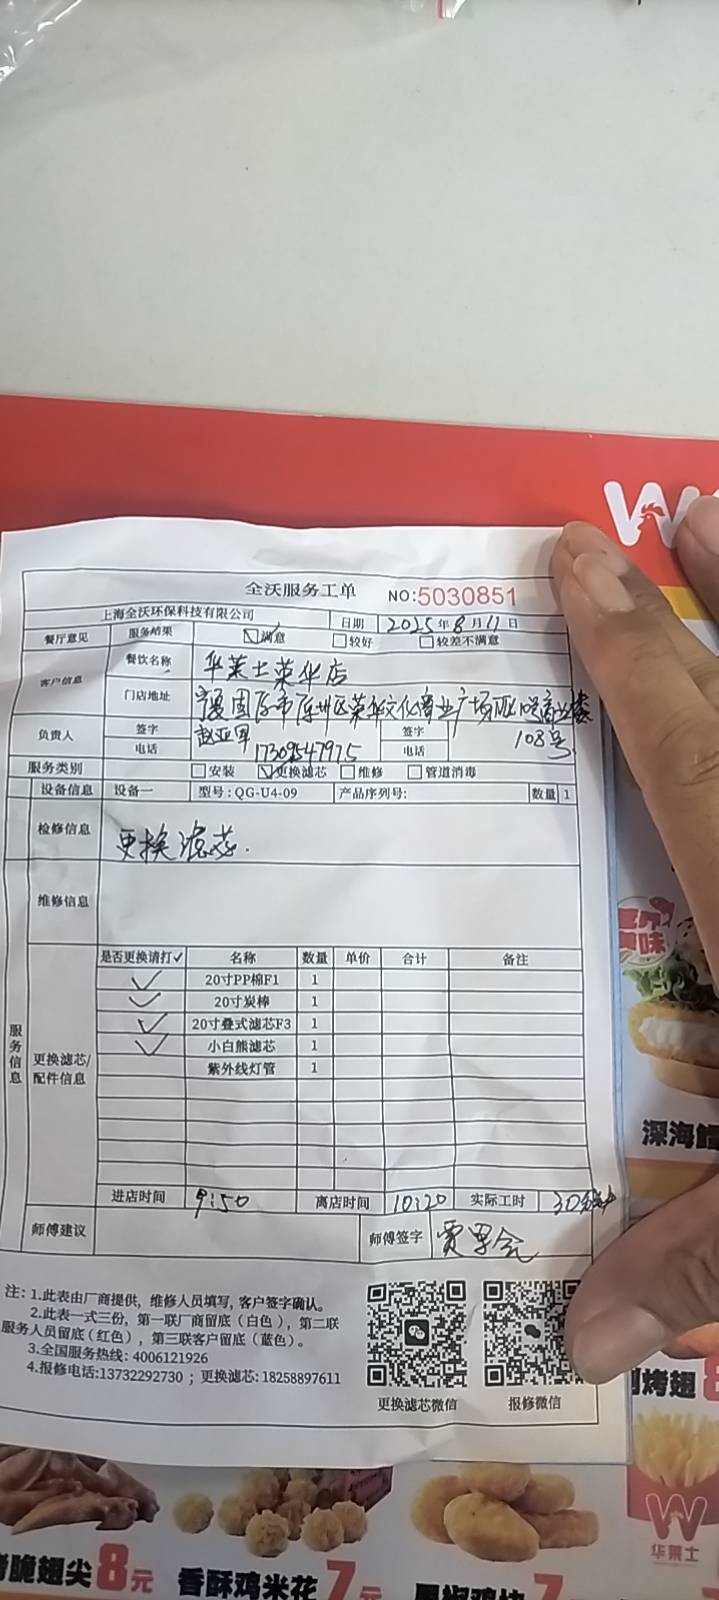 全沃服务工单 NO:5030851
上海全沃环保科技有限公司 日期 2025年8月11日
餐厅意见 服务结果 ☑满意 □较好 □较差不满意
客户信息 餐饮名称 华莱士荣华店
门店地址 宁夏固原市原州区荣华文化商业广场
108号
负责人 签字 赵亚军 签字
电话 17309547975 电话
服务类别 □安装 ☑更换滤芯 □维修 □管道消毒
设备信息 设备一 型号:QG-U4-09 产品序列号: 数量 1
检修信息 更换滤芯.
维修信息
服务信息
更换滤芯/配件信息
是否更换请打✓ 名称 数量 单价 合计 备注
✓ 20寸PP棉F1 1
✓ 20寸炭棒 1
✓ 20寸叠式滤芯F3 1
✓ 小白熊滤芯 1
紫外线灯管 1
进店时间 9:50 离店时间 10:20 实际工时 30分钟
师傅建议 师傅签字
注: 1.此表由厂商提供, 维修人员填写, 客户签字确认。
2.此表一式三份, 第一联厂商留底(白色), 第二联
服务人员留底(红色), 第三联客户留底(蓝色)。
3.全国服务热线: 4006121926
4.报修电话:13732292730 ; 更换滤芯: 18258897611
更换滤芯微信 报修微信
深海鳕
烤翅
华莱士
脆翅尖8元
香酥鸡米花7元